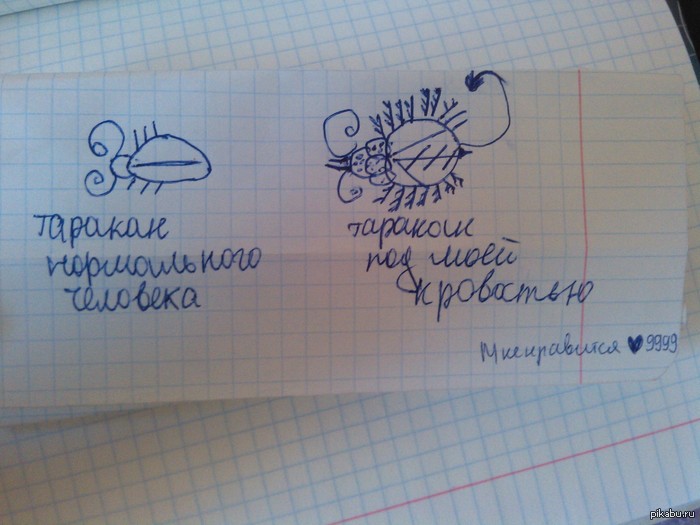 таракан
нормального
человека
таракан
под моей
кроватью
Мне нравится ♥ 9999
pikabu.ru